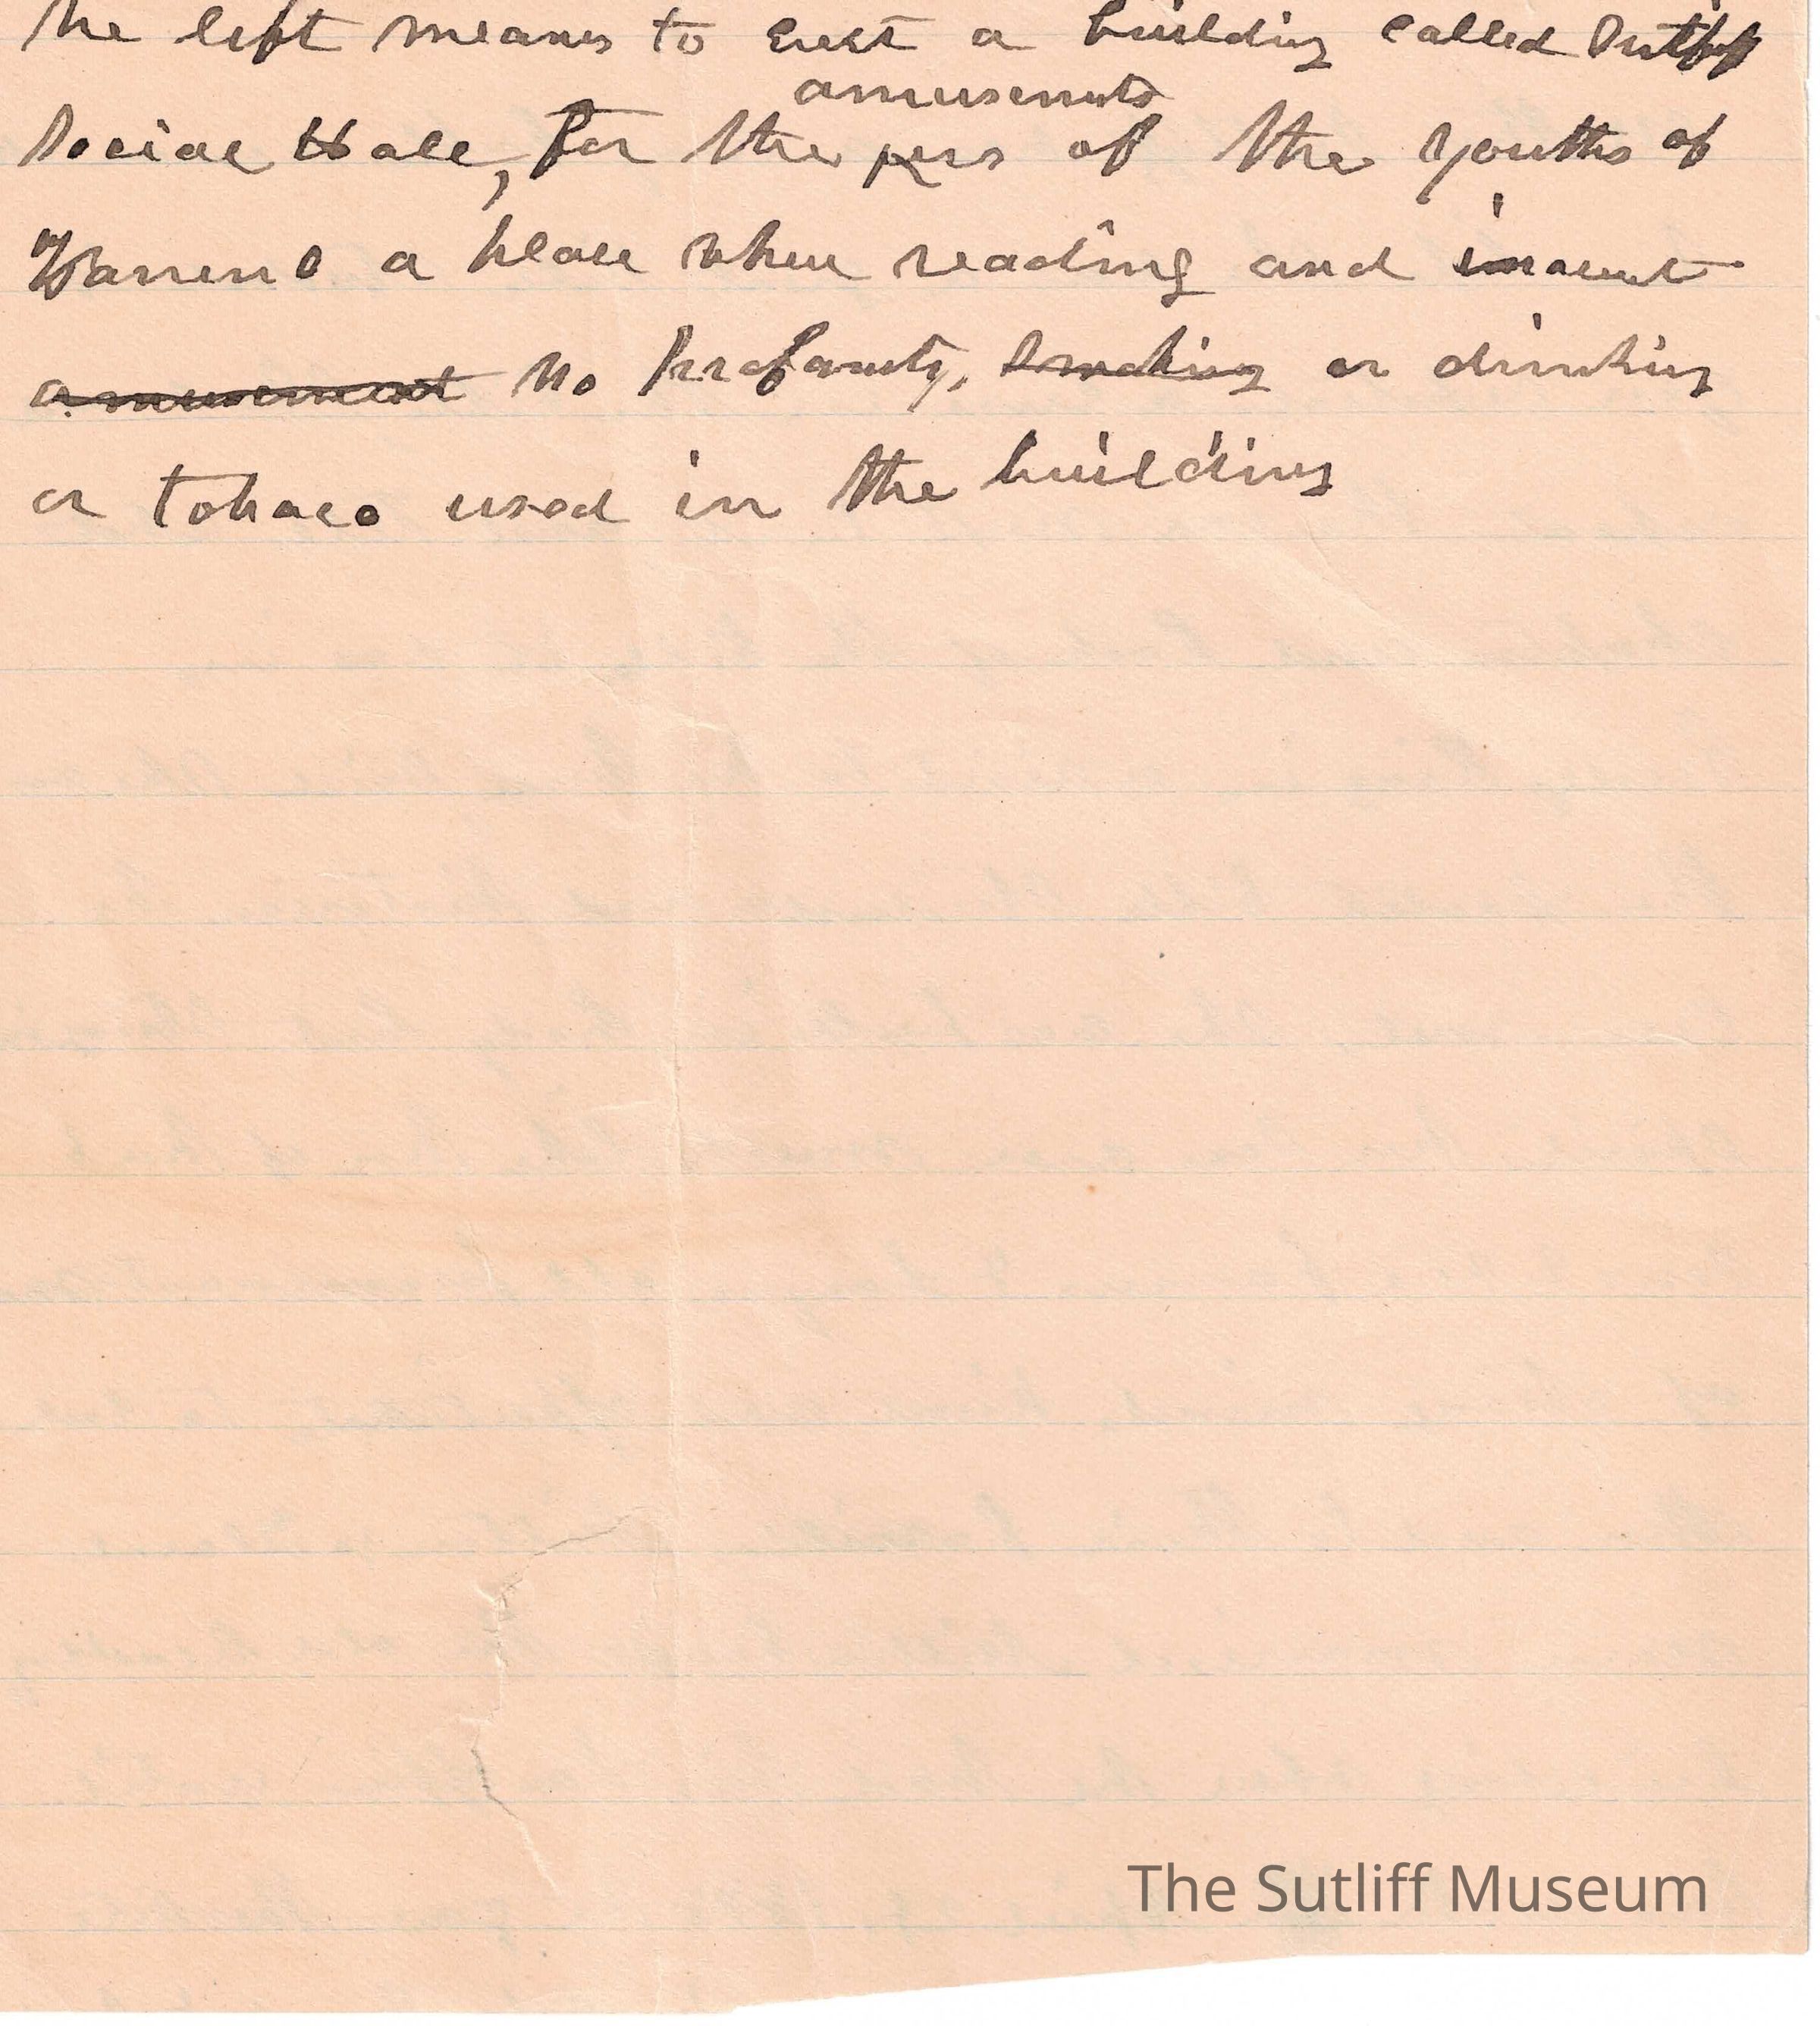 he left means to erect a building called Sutliff
amusements
Social Hall, for the of the youths of
Warren O a place where reading and inocent
amusement no profanity, smoking or drinking
or tobaco used in the building
The Sutliff Museum